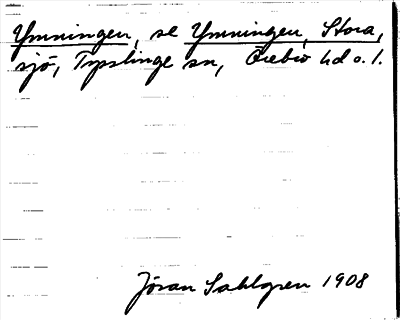 Ymningen, se Ymningen, Stora,
sjö, Tysslinge sn, Örebro hd o. l.
Jöran Sahlgren 1908